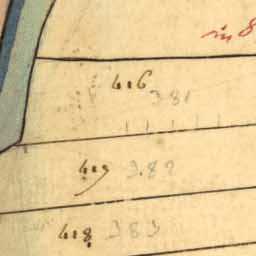 in 8
416
381
417 382
418 383